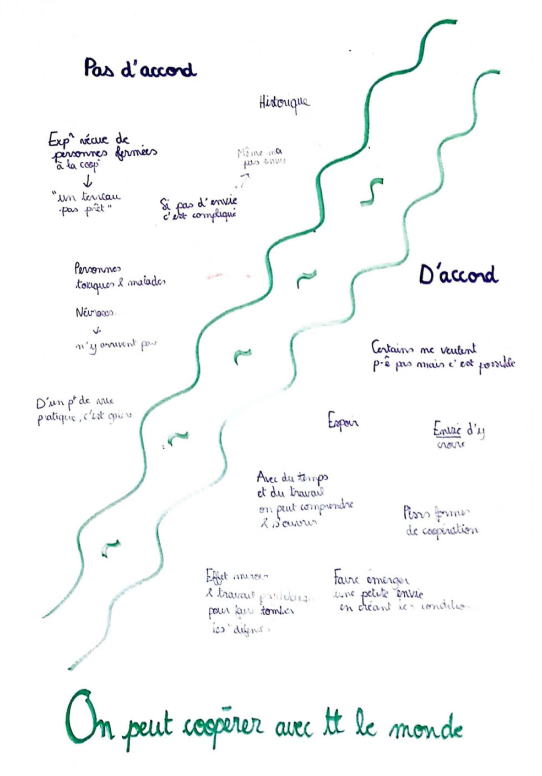 Pas d'accord
Historique
Exp° vécue de
personnes fermées
à la coop°
"un terreau
pas prêt"
Même
pas envie
Si pas d'envie
c'est compliqué
Personnes
toxiques & malades
Névroses
n'y arrivent pas
D'un p° de vue
pratique, c'est
D'accord
Certains ne veulent
p-ê pas mais c'est possible
Espoir
Envie d'y
croire
Avec du temps
et du travail
on peut comprendre
& s'ouvrir
Plsrs formes
de coopération
Effet miroir
& travail
pour faire tomber
les
Faire émerger
une petite envie
en créant les conditions
On peut coopérer avec tt le monde